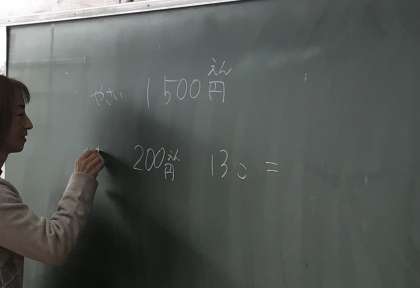 やさい 1500円
えん
200円 13こ =
えん